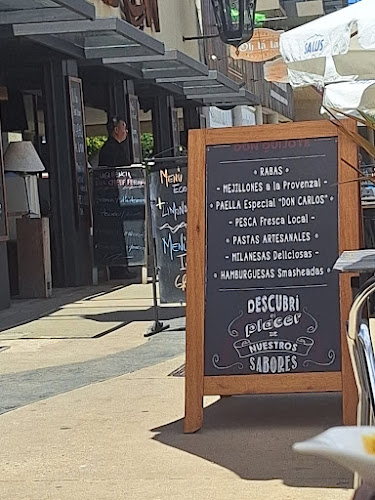 Oh la la
SALUS
DON QUIJOTE
• RABAS •
- MEJILLONES a la Provenzal -
- PAELLA Especial "DON CARLOS" -
- PESCA Fresca Local -
- PASTAS ARTESANALES -
- MILANESAS Deliciosas -
- HAMBURGUESAS Smasheadas -
DESCUBRÍ
el
placer
DE
NUESTROS
SABORES
MENU
LIMON
MENU